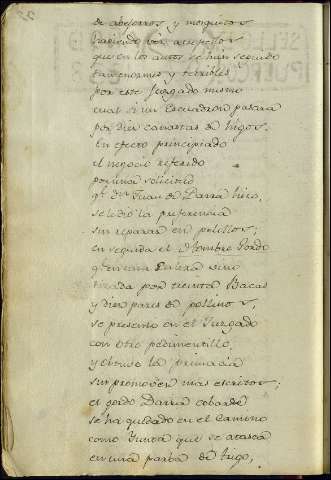 de abejorros, y mosquitos
haciendo ver atropellos
que en los autos se han seguido
tan enormes y terribles,
por este Juzgado mismo
cual si un Escuadron pasara
por diez canastas de higos.
En efecto principiado
el negocio referido
por una solicitud
qe. Dn. Juan de Parra hizo,
se le dio la preferencia
sin reparar en pelillos;
en seguida el Hombre Gordo
qe. en una Galera vino
tirada por treinta Bacas
y diez pares de pollinos,
se presento en el Juzgado
con otro pedimentillo,
y obtubo la primacia
sin promover mas escritos;
el gordo Parra cobarde
se ha quedado en el camino
como Yunta que se atasca
en una parba de trigo,